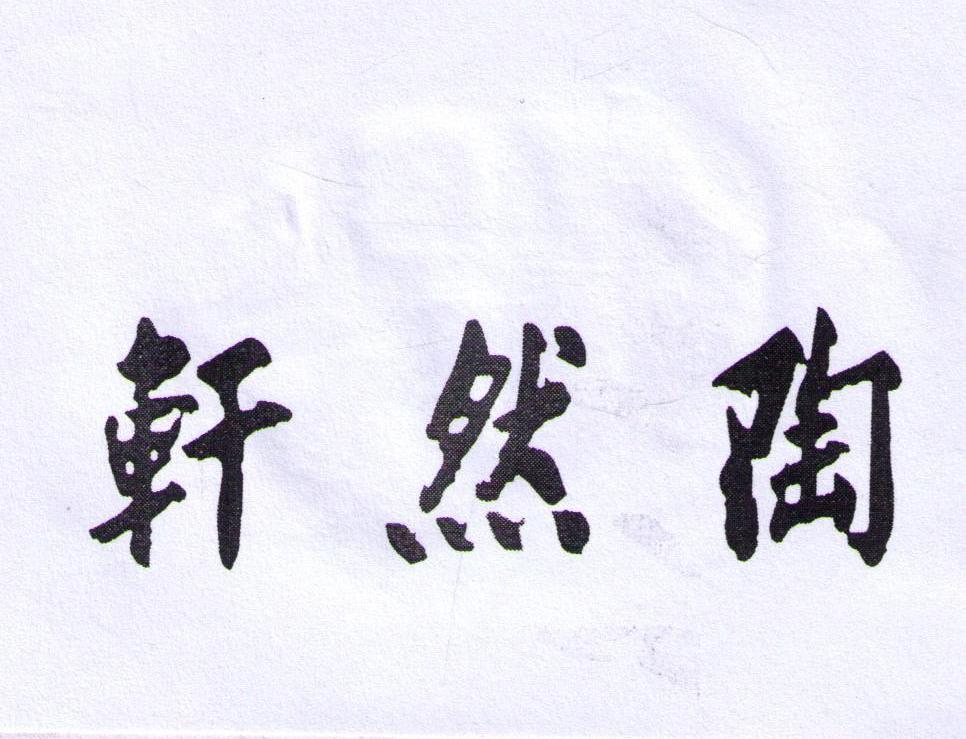 陶然軒